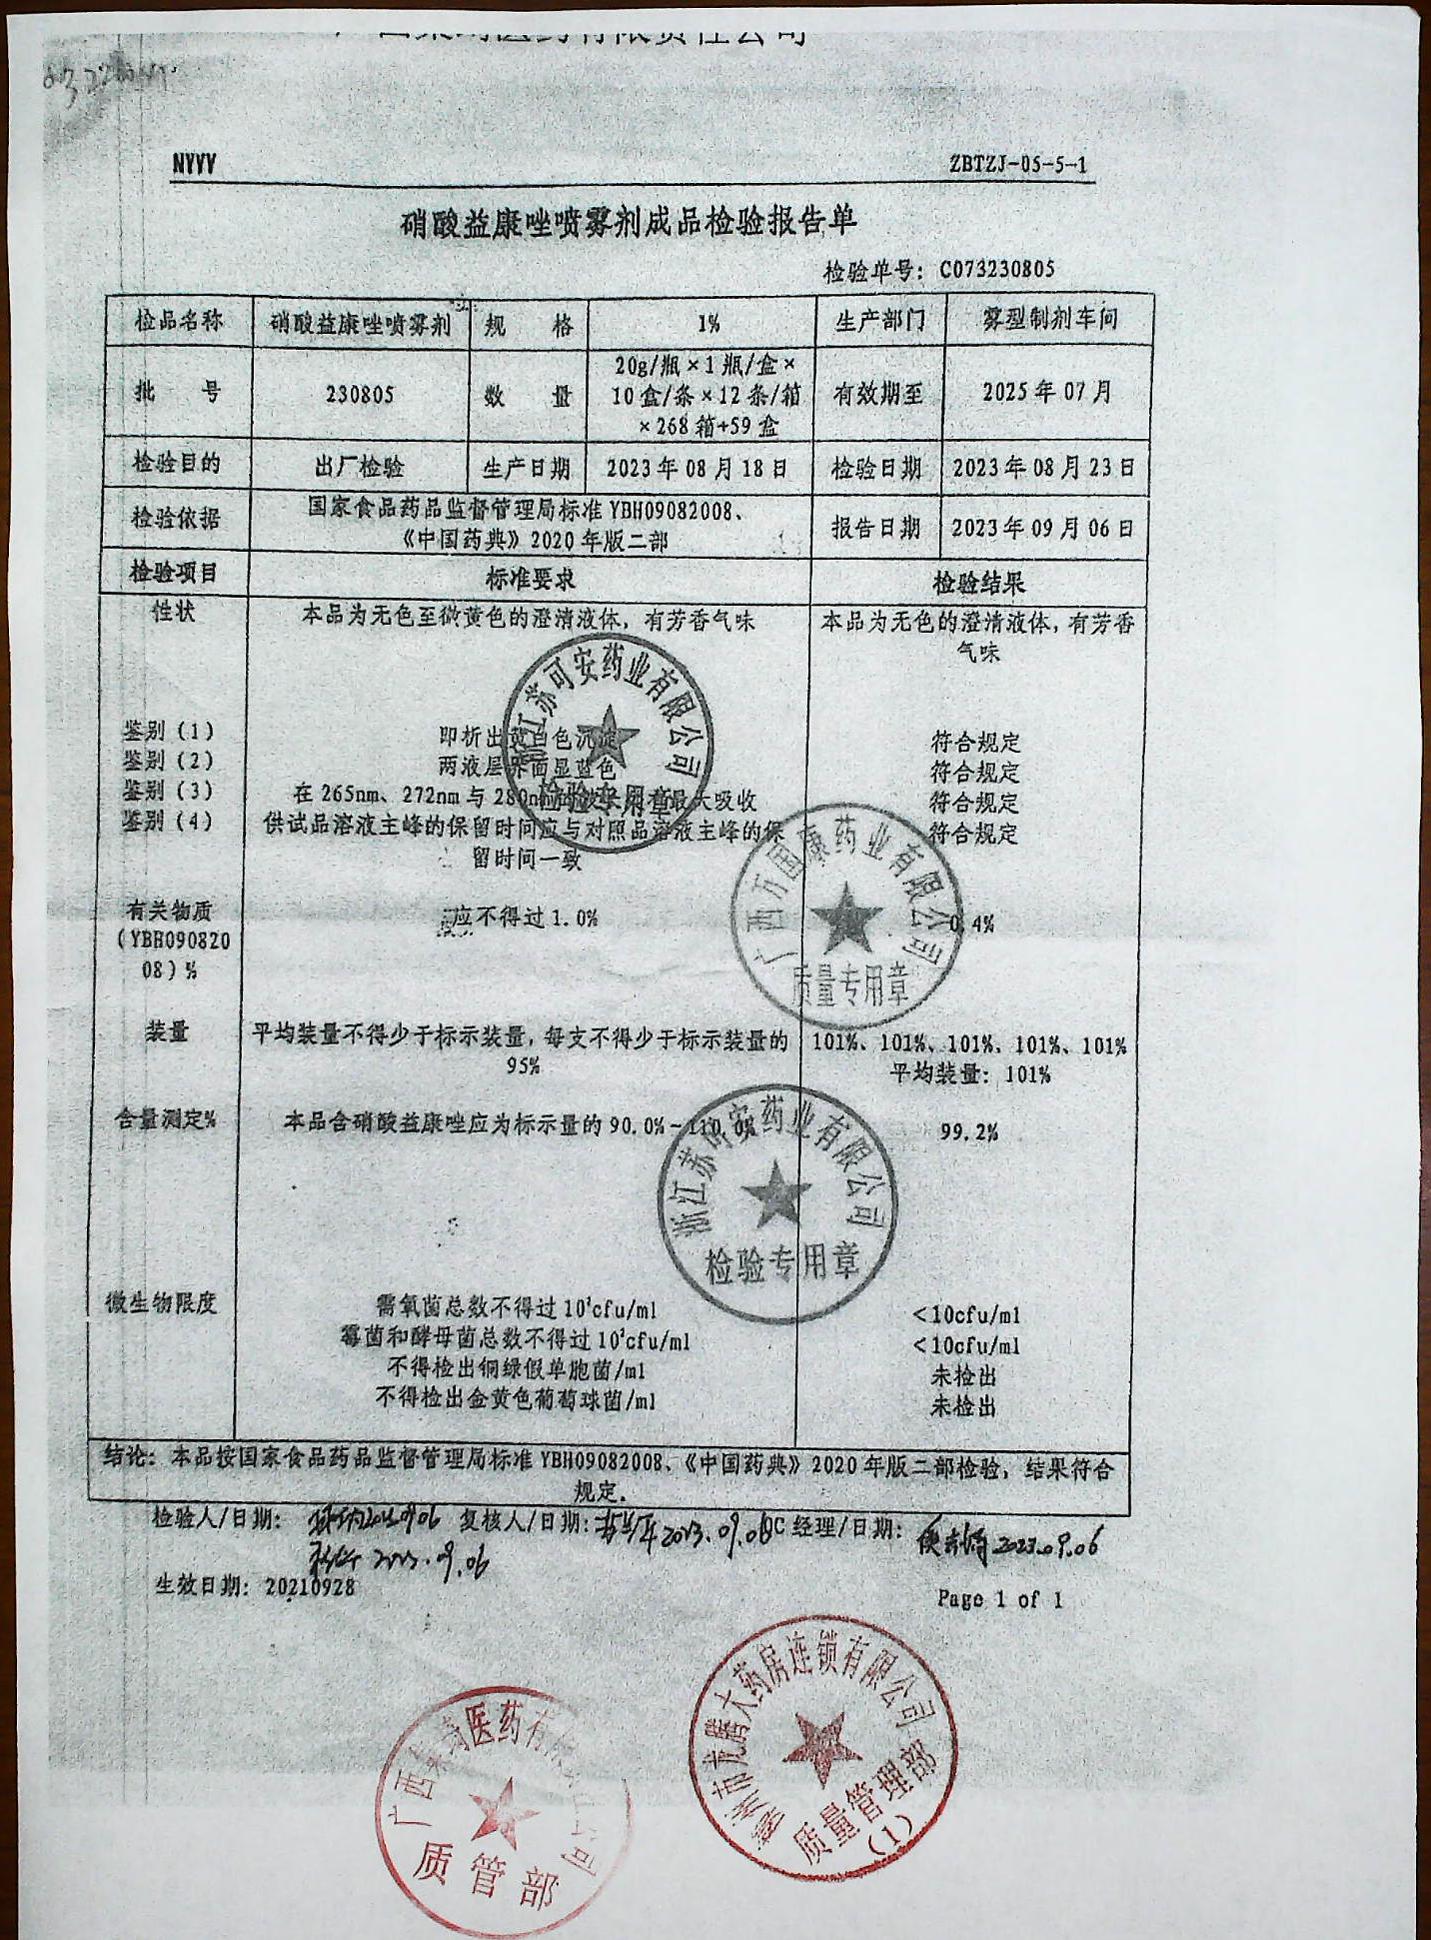 医药有限责任公司
NYYY
ZBTZJ-05-5-1
硝酸益康唑喷雾剂成品检验报告单
检验单号：C073230805
检品名称 硝酸益康唑喷雾剂 规 格 1% 生产部门 雾型制剂车间
批 号 230805 数 量 20g/瓶×1瓶/盒× 有效期至 2025年07月
10盒/条×12条/箱
×268箱+59盒
检验目的 出厂检验 生产日期 2023年08月18日 检验日期 2023年08月23日
检验依据 国家食品药品监督管理局标准YBH09082008、 报告日期 2023年09月06日
《中国药典》2020年版二部
检验项目 标准要求 检验结果
性状 本品为无色至微黄色的澄清液体，有芳香气味 本品为无色的澄清液体，有芳香
气味
鉴别（1） 即析出黄白色沉淀 符合规定
鉴别（2） 两液层界面显蓝色 符合规定
鉴别（3） 在265nm、272nm与280nm的波长处有最大吸收 符合规定
鉴别（4） 供试品溶液主峰的保留时间应与对照品溶液主峰的保 符合规定
留时间一致
浙江苏可安药业有限公司
检验专用章
有关物质 应不得过1.0% 0.4%
（YBH090820
08）%
广西万国康药业有限公司
质量专用章
装量 平均装量不得少于标示装量，每支不得少于标示装量的 101%、101%、101%、101%、101%
95% 平均装量：101%
含量测定% 本品含硝酸益康唑应为标示量的90.0%~110.0% 99.2%
浙江苏可安药业有限公司
检验专用章
微生物限度 需氧菌总数不得过10²cfu/ml <10cfu/ml
霉菌和酵母菌总数不得过10²cfu/ml <10cfu/ml
不得检出铜绿假单胞菌/ml 未检出
不得检出金黄色葡萄球菌/ml 未检出
结论：本品按国家食品药品监督管理局标准YBH09082008、《中国药典》2020年版二部检验，结果符合
规定。
检验人/日期： 复核人/日期： 2023.09.06 QC经理/日期： 2023.09.06
2023.09.06
生效日期：20210928
Page 1 of 1
广西 医药有限 公司
质管部
州市 大药房连锁有限公司
质量管理部
（1）